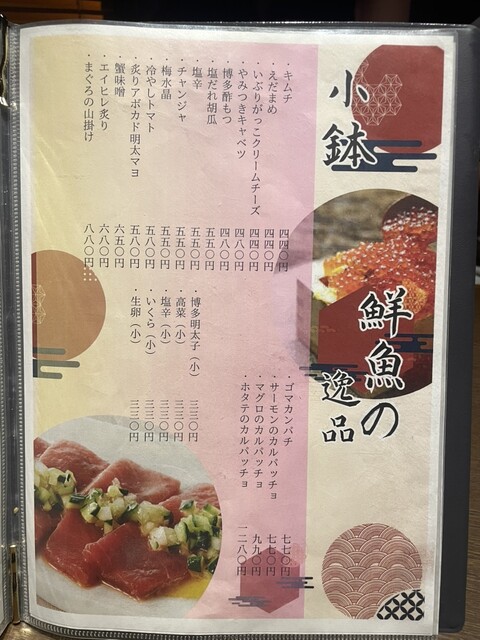 小鉢
鮮魚の
逸品
・キムチ 四四〇円
・えだまめ 四四〇円
・いぶりがっこクリームチーズ 四四〇円
・やみつきキャベツ 四八〇円
・博多酢もつ 四八〇円
・塩だれ胡瓜 五五〇円
・塩辛 五五〇円
・チャンジャ 五五〇円
・梅水晶 五五〇円
・冷やしトマト 五八〇円
・炙りアボカド明太マヨ 五八〇円
・蟹味噌 六五〇円
・エイヒレ炙り 六八〇円
・まぐろの山掛け 八八〇円
・博多明太子（小） 三三〇円
・高菜（小） 三三〇円
・塩辛（小） 三三〇円
・いくら（小） 三三〇円
・生卵（小） 三三〇円
・ゴマカンパチ 七七〇円
・サーモンのカルパッチョ 七七〇円
・マグロのカルパッチョ 九九〇円
・ホタテのカルパッチョ 一二八〇円